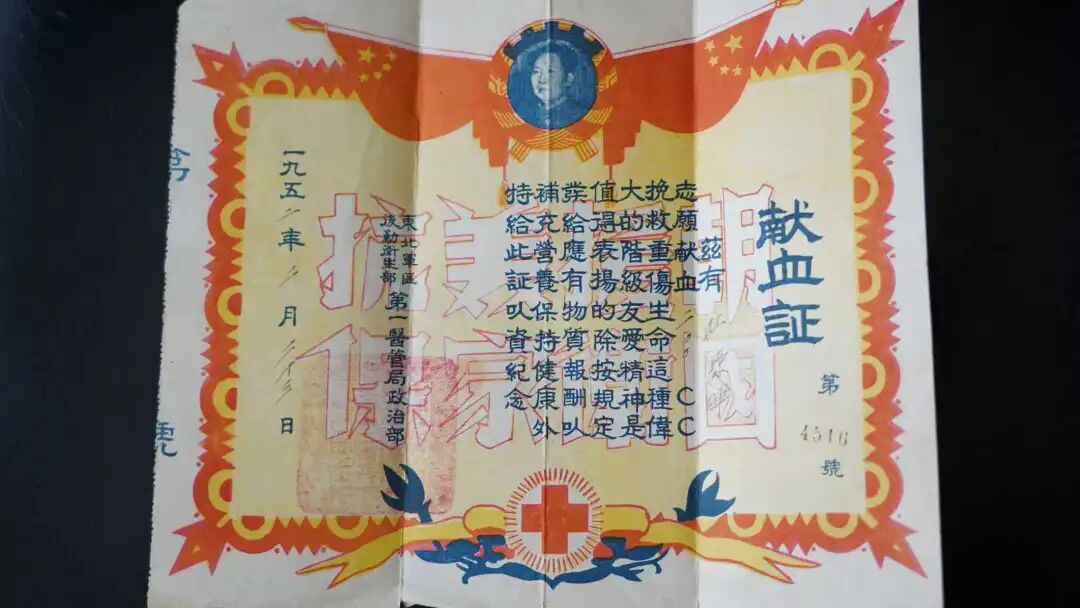 抗美援朝
保家衛國
献血証
第4516號
茲有
志願献血二〇〇CC
挽救重傷生命這種偉
大的階級友愛精神是
值得表揚的除按規定
發給應有物質報酬以
補充營養保持健康外
特給此証以資紀念
東北軍區
後勤衛生部
第一醫管局政治部
一九五二年二月二十三日